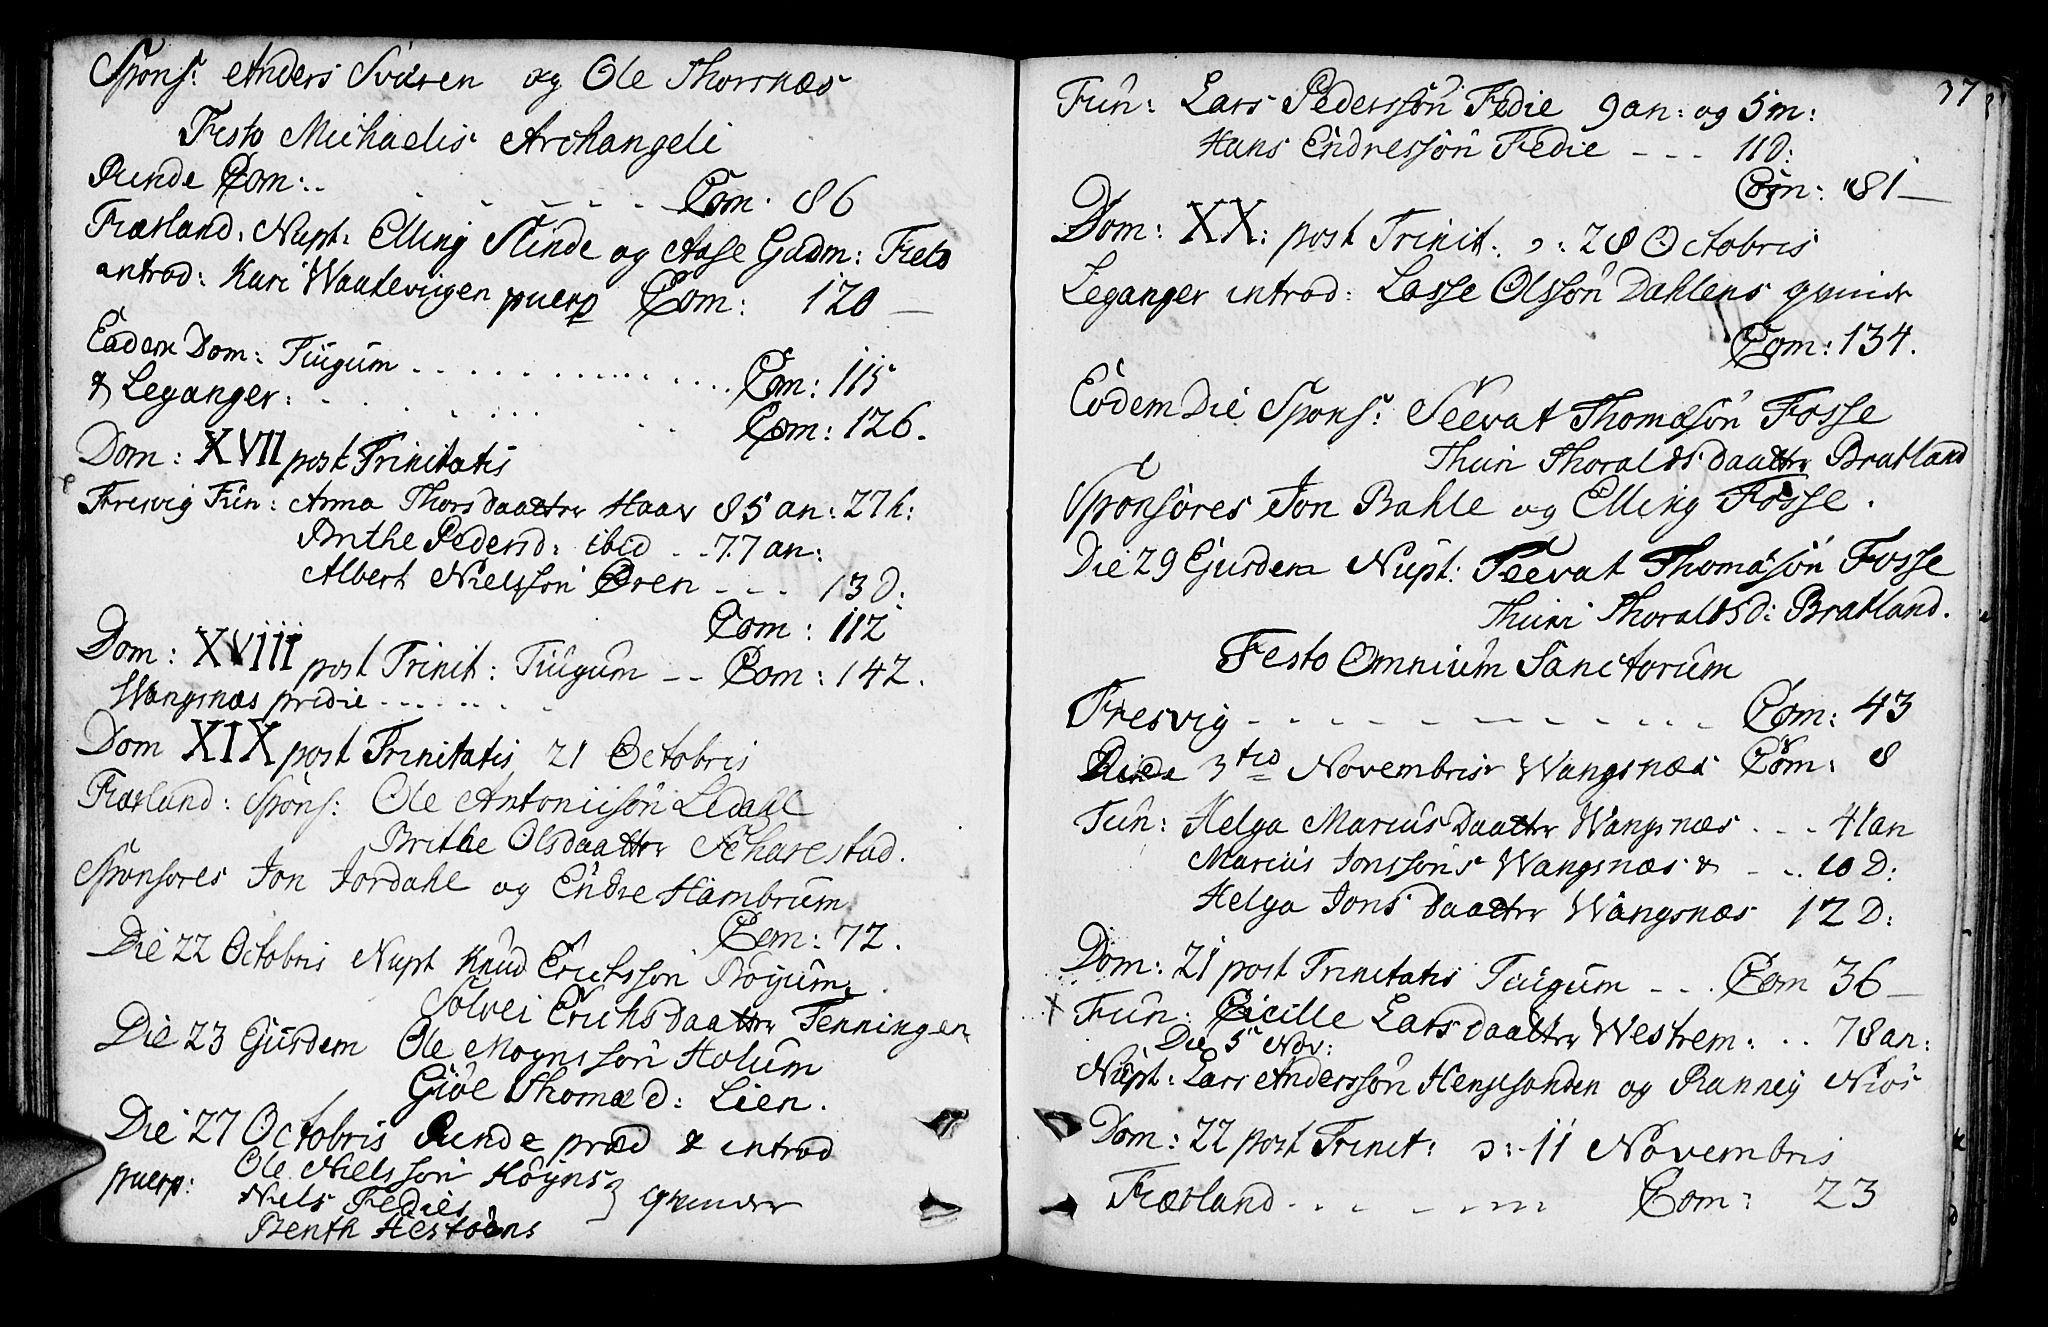 Spons: Anders Svären og Ole Thorsnæs
Festo Michaelis Archangeli
Rinde Com: . . . . . . Com. 86
Fiærland. Nupt: Elling Slinde og Aase Gudm: Fieto
introd: Kari Waatevigen puerp Com: 120 —
Eadem Dom: Tiugum . . . . . . . . . . Com: 115
& Leganger: . . . . . . . Com: 126.
Dom: XVII post Trinitatis
Fresvig Fun: Anna Thorsdaatter Haav 85 an: 27 h:
Brithe Pedersd: ibid . . 77 an:
Albert Nielssön Øren - - - 13 D:
Com: 112
Dom: XViii post Trinit: Tiugum -- Com: 142.
Wangsnæs pridie . . . . . . .
Dom XIX post Trinitatis 21 Octobris
Fiærland: Spons: Ole Antoniisön Ledahl
Brithe Olsdaatter Scharestad.
Sponsores Jon Jordahl og Endre Hambrum
Com: 72.
Die 22 Octobris Nupt Knud Erichssön Böyum
Solvei Erichsdaatter Fenningen
Die 23 Ejusdem Ole Mognssön Holum
Giöe Thomæd: Lien.
Die 27 Octobris Rinde præd & introd
puerp: Ole Nielssön Höyns
Niels Fedies } qvinder
Benth Hestöens
37
Fun: Lars Pederssön Fedie 9 an: og 5 m:
Hans Endressön Fedie - - - 11 D:
Com: 81 —
Dom: XX: post Trinit. ɔ: 28 Octobris
Leganger introd: Lasse Olssön Dahlens qvinde
Com: 134.
Eodem Die Spons: Seevat Thomæsön Fosse
Thuri Thoraldsdaatter Bratland
Sponsores Jon Bahle og Elling Fosse.
Die 29 Ejusdem Nupt: Seevat Thomæsön Fosse
Thuri Thoraldsd: Bratland.
Festo Omnium Sanctorum
Fresvig - - - - - - - - - - - Com: 43
Die 3tio Novembris Wangsnæs Com: 8
Fun: Helga Mariusdaatter Wangsnæs . . . 41 an
Marius Jonssöns Wangsnæs & - .. 10 D:
Helga Jonsdaatter Wangsnæs 12 D:
Dom: 21 post Trinitatis Tiugum - - . Com 36 —
Fun: Cicille Larsdaatter Westrem: . . 78 an:
Die 5 Nov:
Nupt: Lars Anderssön Hengesanden og Ranney Nios
Dom: 22 post Trinit: ɔ: 11 Novembris
Fiærland . . . . . . . Com: 23